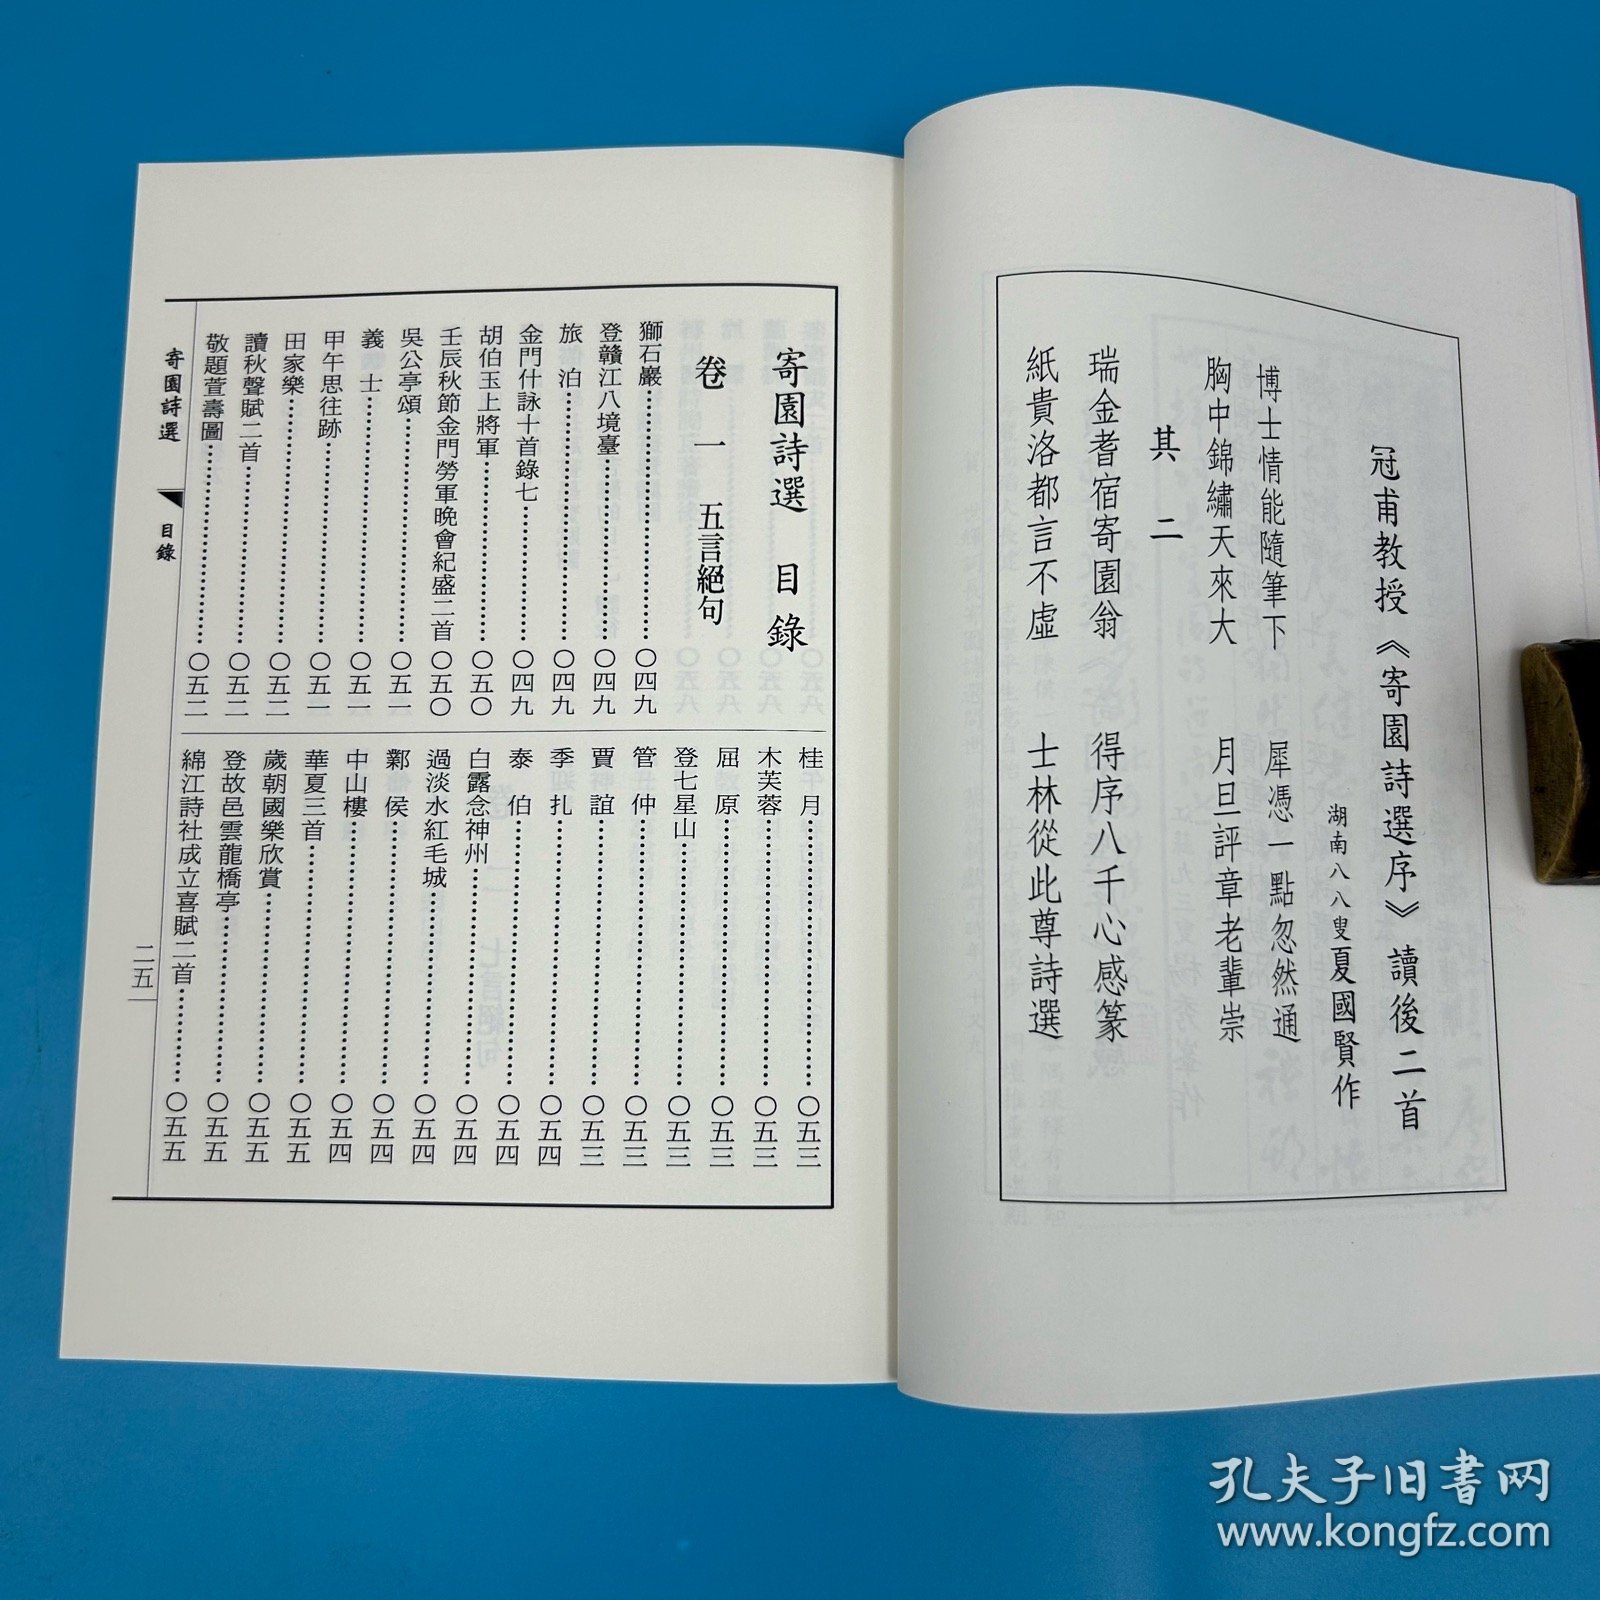 冠甫教授《寄園詩選序》讀後二首
湖南八八叟夏國賢作
博士情能隨筆下 犀憑一點忽然通
胸中錦繡天來大 月旦評章老輩崇
其二
瑞金耆宿寄園翁 得序八千心感篆
紙貴洛都言不虛 士林從此尊詩選
寄園詩選 目錄
卷一 五言絕句
獅石巖……〇四九
登贛江八境臺……〇四九
旅泊……〇四九
金門什詠十首錄七……〇四九
胡伯玉上將軍……〇五〇
壬辰秋節金門勞軍晚會紀盛二首〇五〇
吳公亭頌……〇五一
義士……〇五一
甲午思往跡……〇五一
田家樂……〇五二
讀秋聲賦二首……〇五二
敬題萱壽圖……〇五二
桂月……〇五三
木芙蓉……〇五三
屈原……〇五三
登七星山……〇五三
管仲……〇五三
賈誼……〇五三
季扎……〇五四
泰伯……〇五四
白露念神州……〇五四
過淡水紅毛城……〇五四
鄴侯……〇五四
中山樓……〇五四
華夏三首……〇五五
歲朝國樂欣賞……〇五五
登故邑雲龍橋亭……〇五五
綿江詩社成立喜賦二首……〇五五
寄園詩選 目錄
二五
孔夫子旧书网
www.kongfz.com